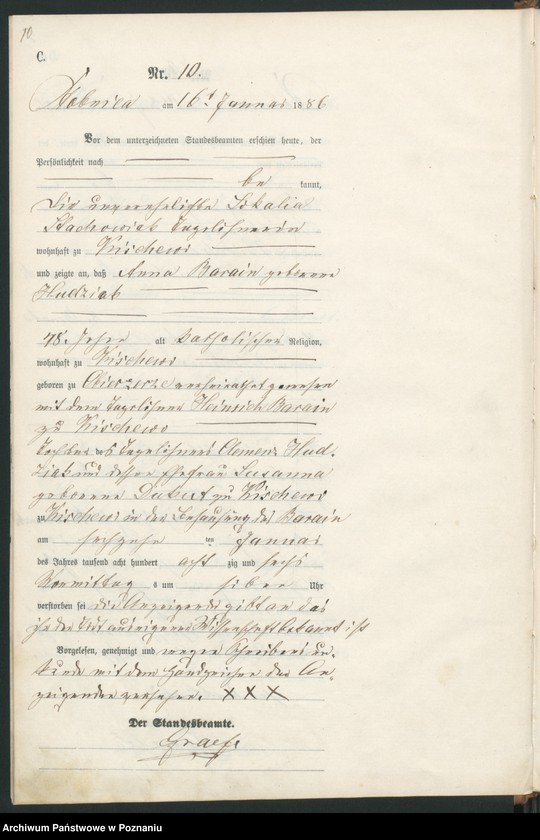 10
C.
Nr. 10.
am 16t Januar 1886
Vor dem unterzeichneten Standesbeamten erschien heute, der
Persönlichkeit nach
be kannt,
die unverehelichte
Stachowiak Tagelöhnerin
wohnhaft zu Krischewo
und zeigte an, daß Anna Barain geborene
Hudziak
78. Jahre alt katholischer Religion,
wohnhaft zu Krischewo
geboren zu verheirathet gewesen
mit dem Tagelöhner Heinrich Barain
zu Krischewo
Tochter des Tagelöhners Clemens Hud-
ziak und dessen Ehefrau Susanna
geborene zu Krischewo
zu Krischewo in der Behausung des Barain
am sechzehn ten Januar
des Jahres tausend acht hundert acht zig und sechs
Vormittag s um sieben Uhr
verstorben sei die Anzeigende gibt an das
ihr der Tod aus eigener Wissenschaft bekannt ist
Vorgelesen, genehmigt und wegen Schreibens un-
kunde mit dem Handzeichen der An-
zeigenden versehen. XXX
Der Standesbeamte.
Graefe
Archiwum Państwowe w Poznaniu